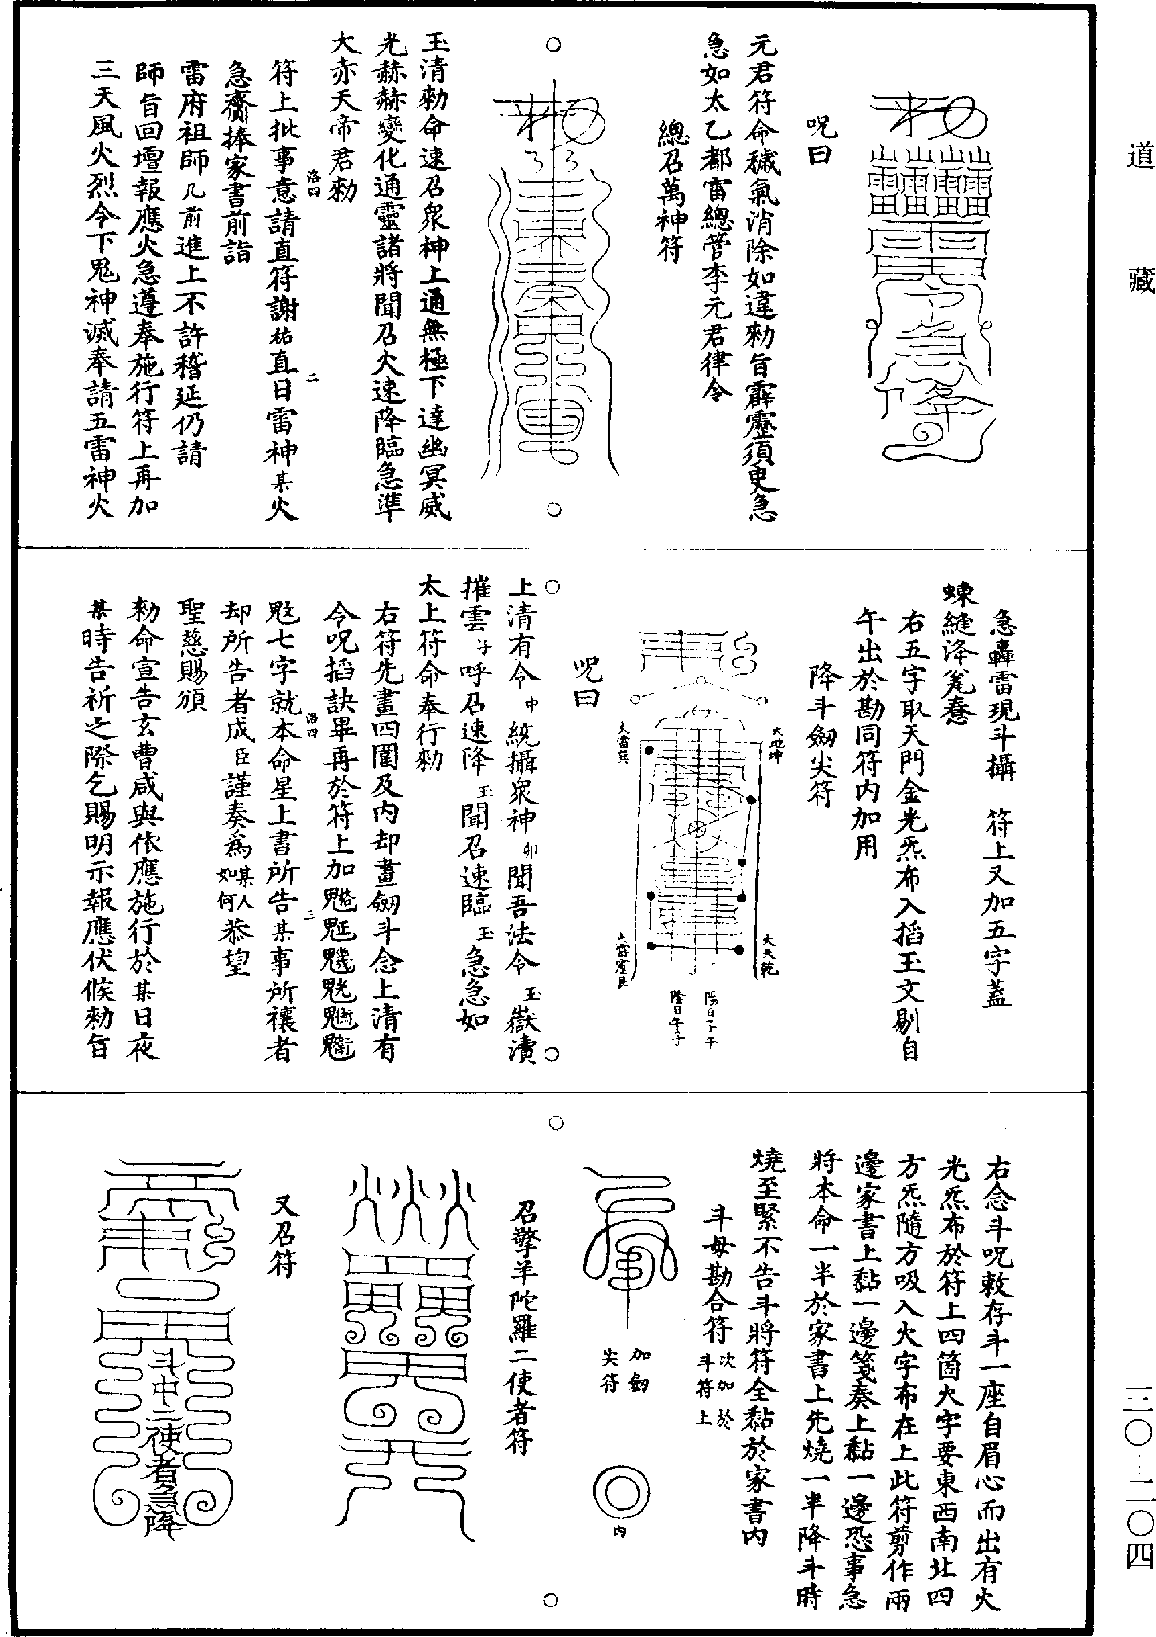 道藏
三〇·二〇四
呪曰
元君符命穢氣消除如違勑旨霹靂須臾急
急如太乙都雷總管李元君律令
總召萬神符
玉清勑命速召衆神上通無極下達幽冥威
光赫赫變化通靈諸將聞召火速降臨急準
大赤天帝君勑
符上批事意請直符謝祐直日雷神某火
急齎捧家書前詣
雷府祖師几前進上不許稽延仍請
師旨回壇報應火急遵奉施行符上再加
三天風火烈令下鬼神滅奉請五雷神火
急轟雷現斗攝 符上又加五字蓋
右五字取天門金光炁布入掐玉文剔自
午出於勘同符内加用
降斗劔尖符
呪曰
上清有令中統攝衆神卯聞吾法令玉嶽瀆
摧雲子呼召速降玉聞召速臨玉急急如
太上符命奉行勑
右符先畫四圍及内却畫劔斗念上清有
令呪掐訣畢再於符上加
七字就本命星上書所告某事所禳者
却所告者成臣謹奏爲某人如何恭望
聖慈賜頒
勑命宣告玄曹咸與依應施行於某日夜
某時告祈之際乞賜明示報應伏候勑旨
右念斗呪敕存斗一座自眉心而出有火
光炁布於符上四箇火字要東西南北四
方炁隨方吸入火字布在上此符剪作兩
邊家書上黏一邊箋奏上黏一邊恐事急
將本命一半於家書上先燒一半降斗時
燒至緊不告斗將符全黏於家書内
斗母勘合符次加於斗符上
加劔尖符
内
召擎羊陀羅二使者符
又召符
斗中二使者急降